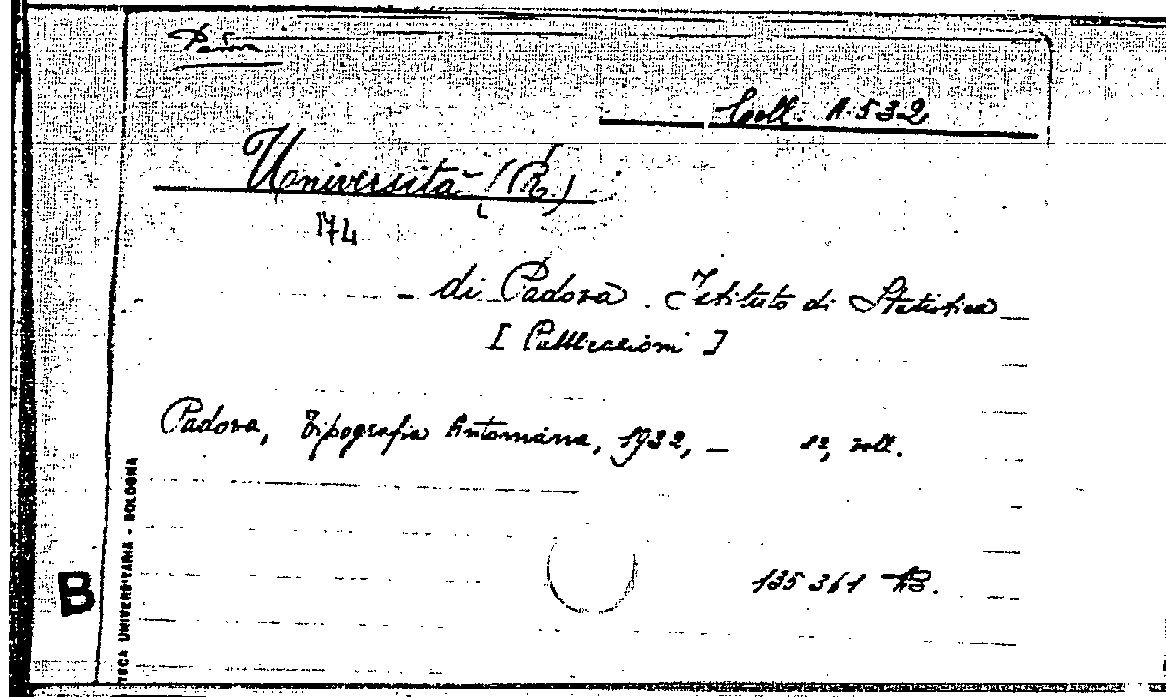 Coll. A. 532
Università (R.)
174
di Padova. Istituto di Statistica
[ Pubblicazioni ]
Padova, Tipografia Antoniana, 1932, — 8º, voll.
135361
B
TECA UNIVERSITARIA - BOLOGNA